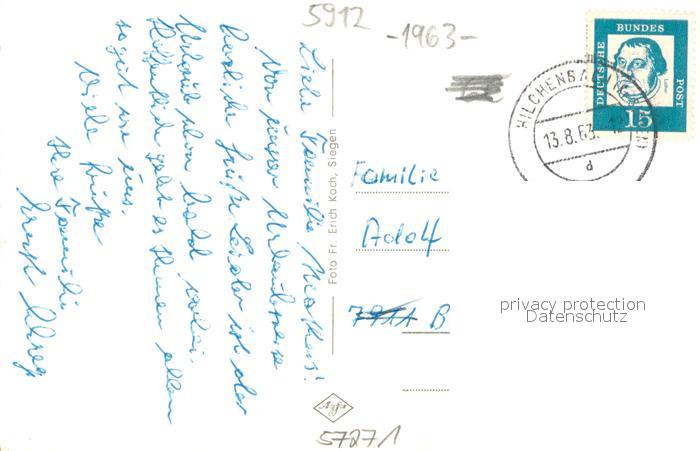 5912 -1963-
Liebe Familie
Von unser Urlaubsreise
herzliche Grüße. Leider ist der
Urlaub schon bald vorbei.
Hoffentlich geht es Ihnen allen
so gut wie uns.
Viele Grüße
Ihre Familie
Ernst
Foto Fr. Erich Koch, Siegen
Agfa
57271
DEUTSCHE BUNDES POST
15
HILCHENBACH
13.8.63.
d
Familie
Adolf
7911 B
privacy protection
Datenschutz